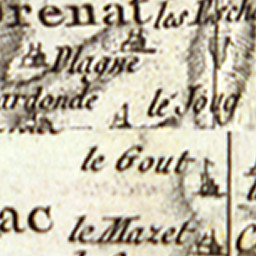 orenat les Pêche
Plagne
ardonde le Joug
le Gout
ac le Mazet C